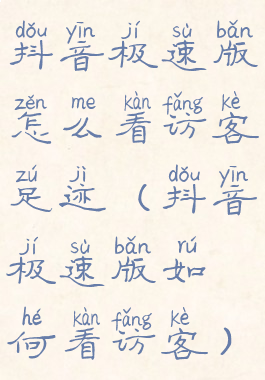 dǒu yīn jí sù bǎn
抖音极速版
zěn me kàn fǎng kè
怎么看访客
zú jì dǒu yīn
足迹（抖音
jí sù bǎn rú
极速版如
hé kàn fǎng kè
何看访客）